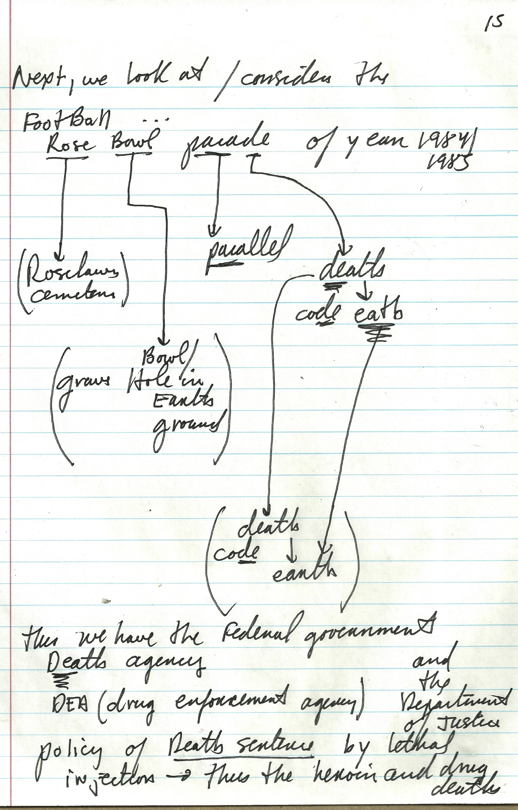 15
Next, we look at / consider the
FootBall ...
Rose Bowl parade of year 1984/
1985
parallel
(Roselawn
cemetery)
death
code eath
(grave Bowl/
Hole in
Earth
ground)
(death
code
earth)
thus we have the Federal government
Death agency
and
the
DEA (drug enforcement agency) Department
of Justice
policy of Death sentence by lethal
injection → thus the heroin and drug
deaths